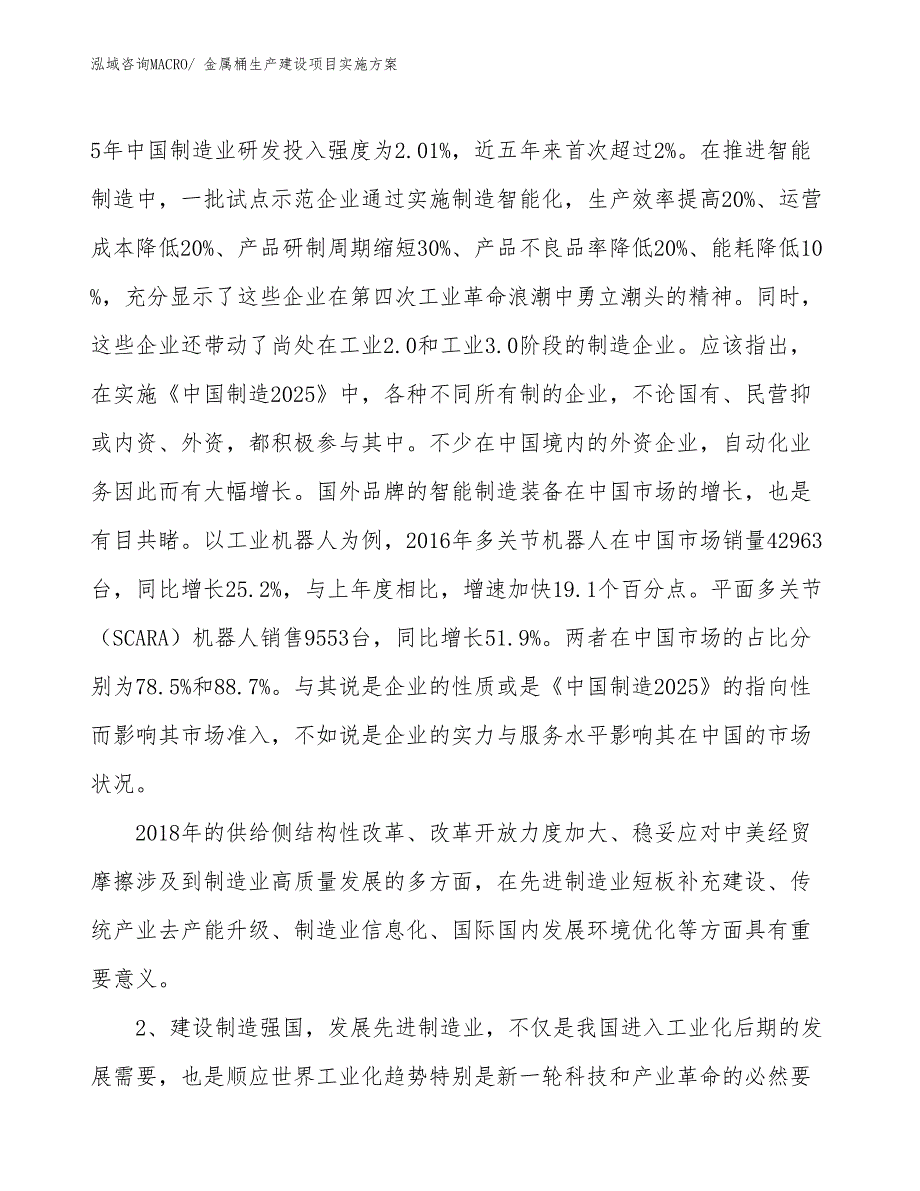 泓域咨询MACRO/ 金属桶生产建设项目实施方案
5年中国制造业研发投入强度为2.01%，近五年来首次超过2%。在推进智能
制造中，一批试点示范企业通过实施制造智能化，生产效率提高20%、运营
成本降低20%、产品研制周期缩短30%、产品不良品率降低20%、能耗降低10
%，充分显示了这些企业在第四次工业革命浪潮中勇立潮头的精神。同时，
这些企业还带动了尚处在工业2.0和工业3.0阶段的制造企业。应该指出，
在实施《中国制造2025》中，各种不同所有制的企业，不论国有、民营抑
或内资、外资，都积极参与其中。不少在中国境内的外资企业，自动化业
务因此而有大幅增长。国外品牌的智能制造装备在中国市场的增长，也是
有目共睹。以工业机器人为例，2016年多关节机器人在中国市场销量42963
台，同比增长25.2%，与上年度相比，增速加快19.1个百分点。平面多关节
（SCARA）机器人销售9553台，同比增长51.9%。两者在中国市场的占比分
别为78.5%和88.7%。与其说是企业的性质或是《中国制造2025》的指向性
而影响其市场准入，不如说是企业的实力与服务水平影响其在中国的市场
状况。
2018年的供给侧结构性改革、改革开放力度加大、稳妥应对中美经贸
摩擦涉及到制造业高质量发展的多方面，在先进制造业短板补充建设、传
统产业去产能升级、制造业信息化、国际国内发展环境优化等方面具有重
要意义。
2、建设制造强国，发展先进制造业，不仅是我国进入工业化后期的发
展需要，也是顺应世界工业化趋势特别是新一轮科技和产业革命的必然要